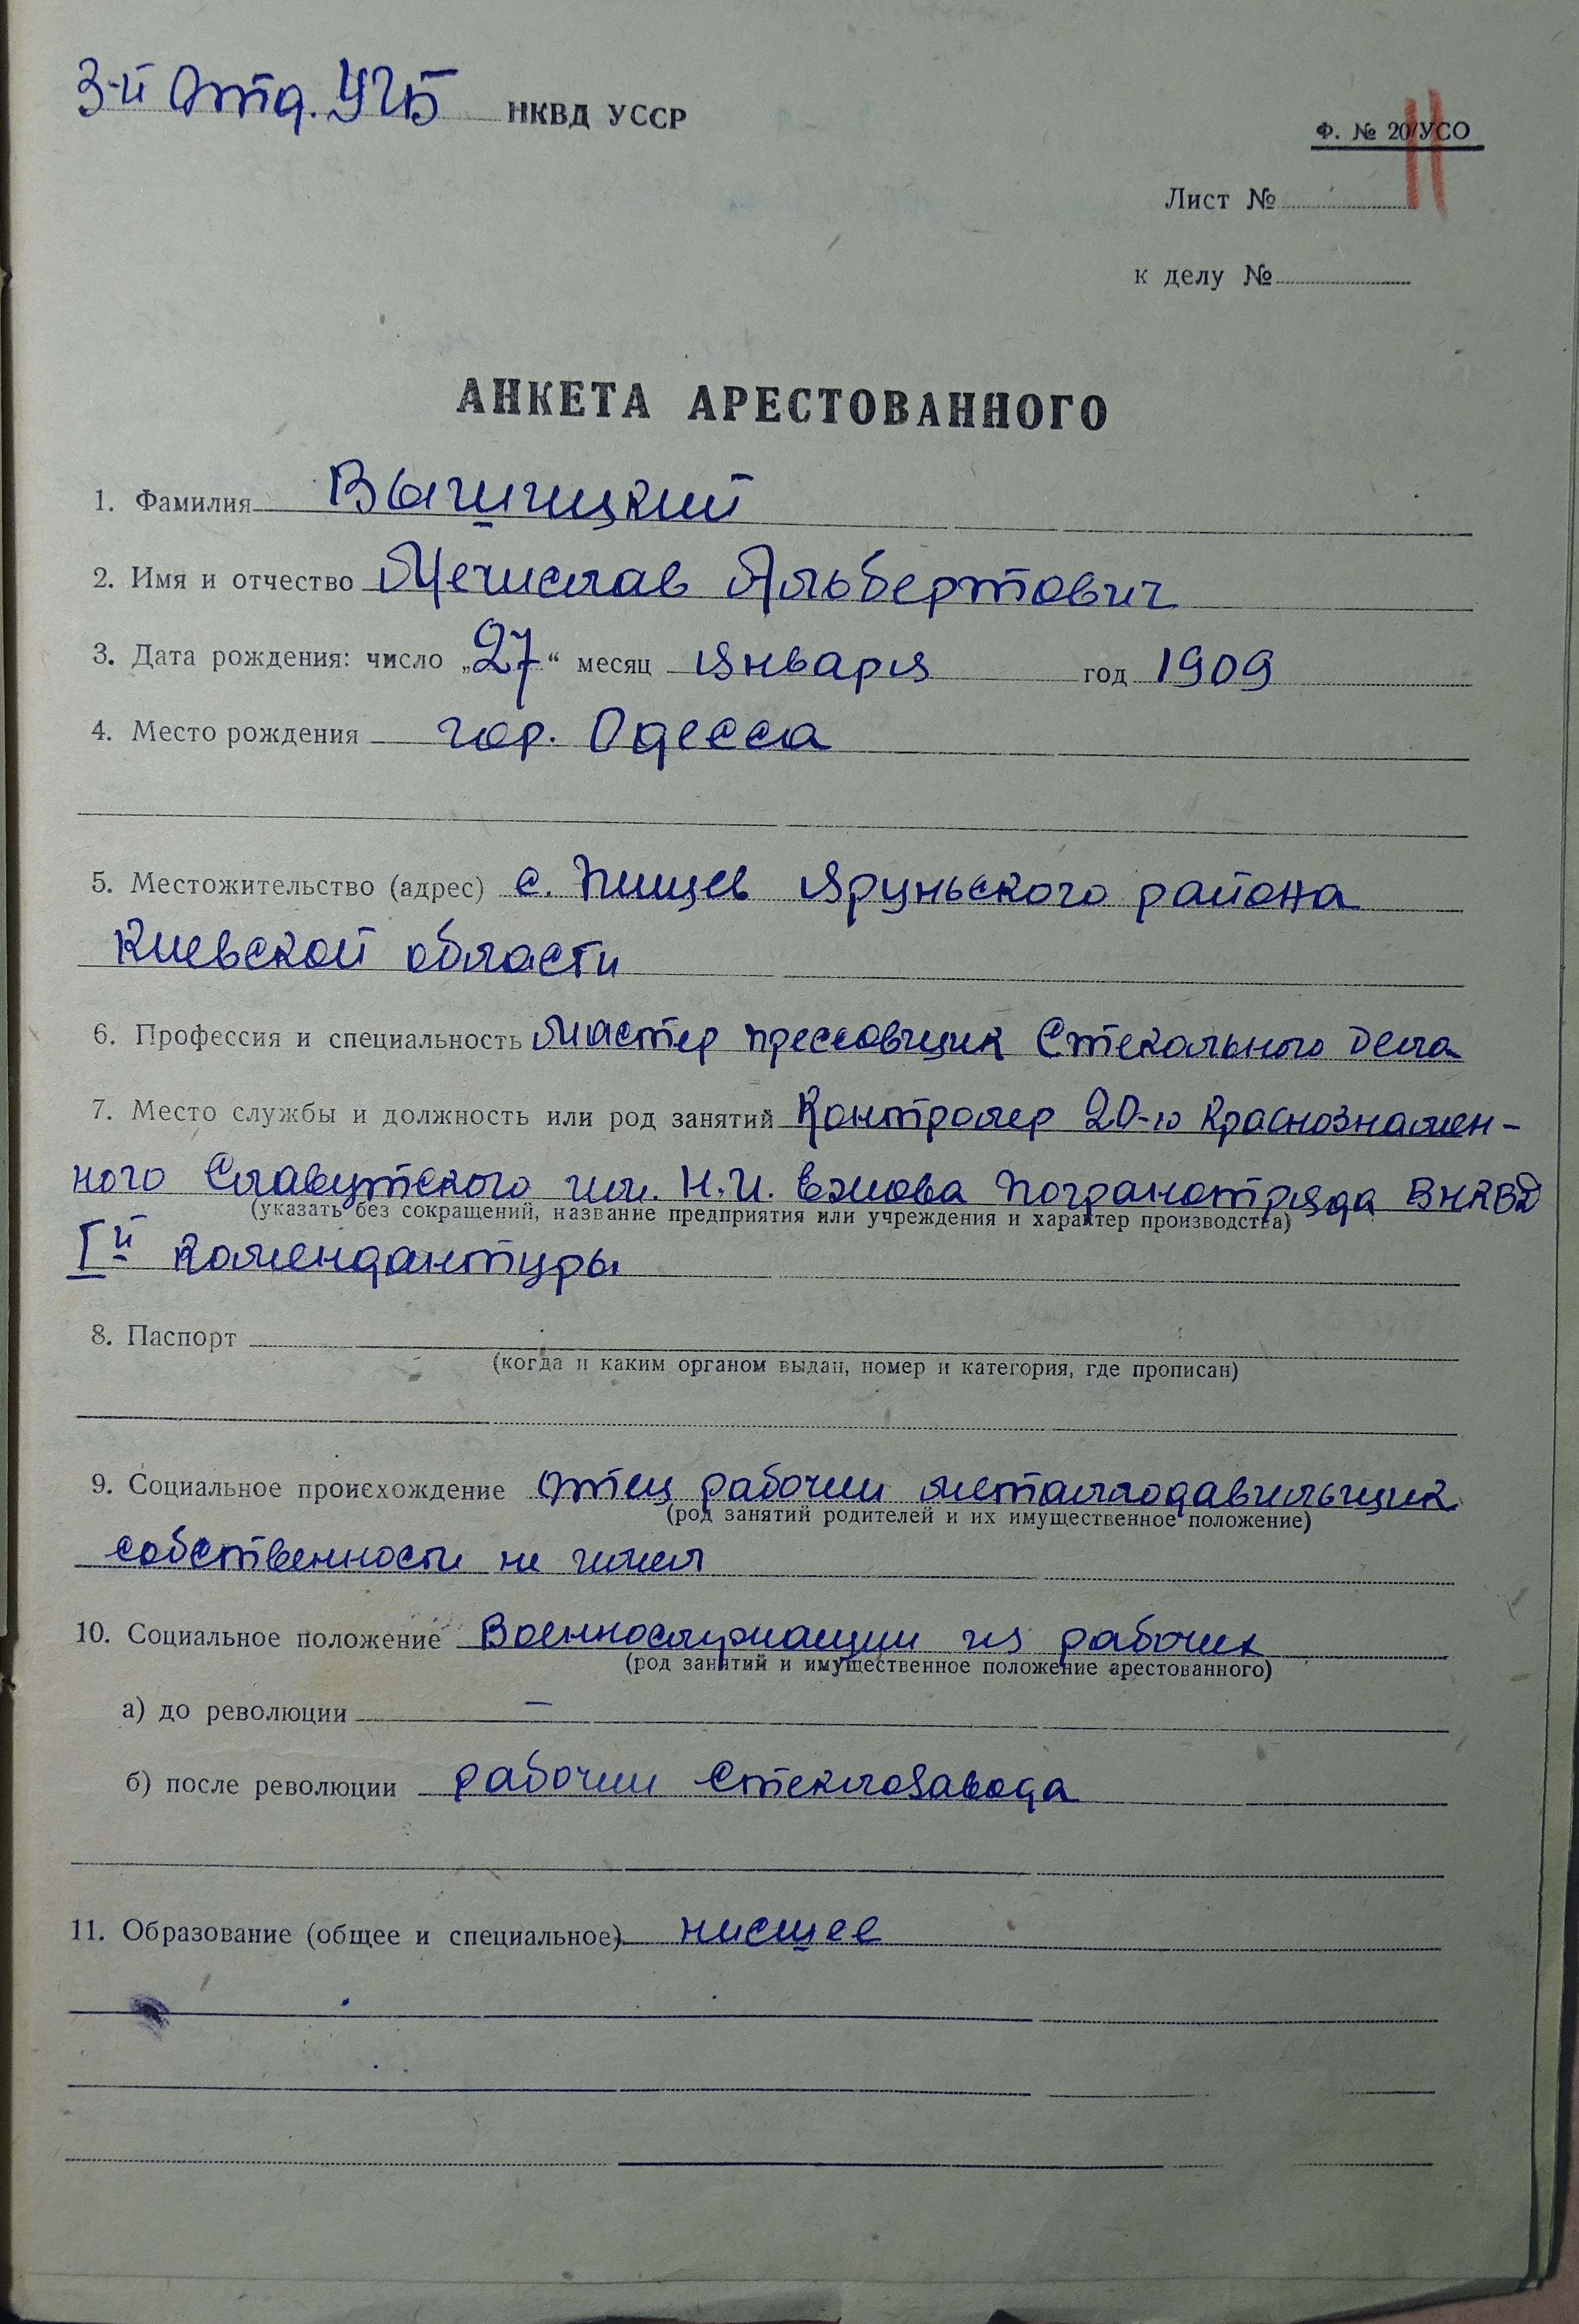 3-й Отд. УГБ НКВД УССР
Ф. № 20/УСО
11
Лист №
к делу №
АНКЕТА АРЕСТОВАННОГО
1. Фамилия Вышицкий
2. Имя и отчество Мечислав Альбертович
3. Дата рождения: число „27“ месяц января год 1909
4. Место рождения гор. Одесса
5. Местожительство (адрес) с. Пищев Яруньского района
Киевской области
6. Профессия и специальность Мастер прессовщик Стекольного дела
7. Место службы и должность или род занятий Контролер 20-го Краснознамен-
ного Славутского им. Н.И. Ежова Погранотряда ВНКВД
(указать без сокращений, название предприятия или учреждения и характер производства)
I й Комендантуры
8. Паспорт
(когда и каким органом выдан, номер и категория, где прописан)
9. Социальное происхождение Отец рабочий металлодавильщик
(род занятий родителей и их имущественное положение)
собственности не имел
10. Социальное положение Военнослужащии из рабочих
(род занятий и имущественное положение арестованного)
а) до революции —
б) после революции рабочии Стеклозавода
11. Образование (общее и специальное) нисшее